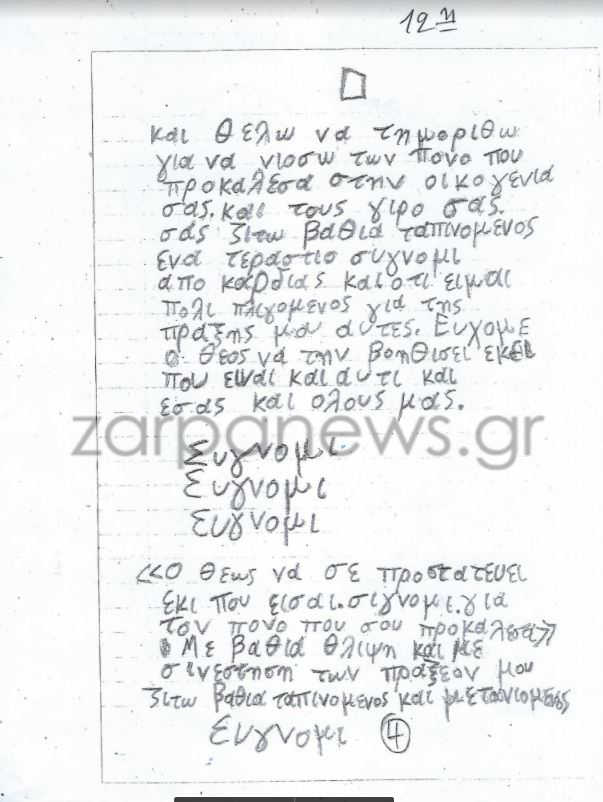 12η
και θελω να τημοριθω
για να νιοσω των πονο που
προκαλεσα στην οικογενια
σας. και τους γιρο σας.
σας ζιτω βαθια ταπινομενος
ενα τεραστιο συγνομι
απο καρδιας και οτι ειμαι
πολι πλιγομενος για της
πραξης μου αυτες. Ευχομε
ο θεος να την βοηθισει εκει
που ειναι και αυτι και
εσας και ολους μας.
zarpanews.gr
Συγνομι
Συγνομι
Συγνομι
<<Ο θεως να σε προστατευει
εκι που εισαι. σιγνομι. για
τον πονο που σου προκαλεσα>>
Με βαθια θλιψη και με
σινεστηση των πραξεον μου
ζιτω βαθια ταπινομενος και μετανιομενος
Συγνομι 4